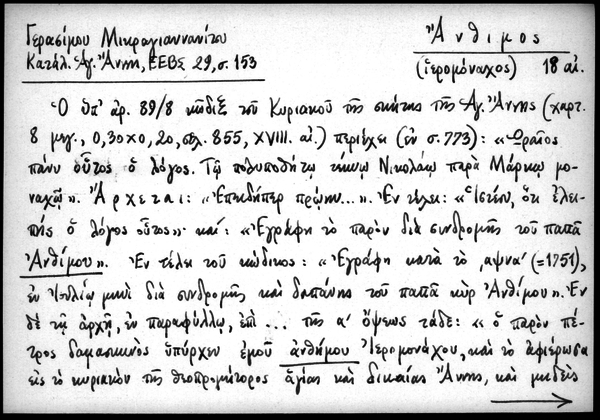 Γερασίμου Μικραγιαννανίτου
Κατάλ. Ἁγ. Ἄννης, ΕΕΒΣ 29, σ. 153
Ἄνθιμος
(ἱερομόναχος) 18 αἰ.
Ὁ ὑπ' ἀρ. 89/8 κῶδιξ τοῦ Κυριακοῦ τῆς σκήτης τῆς Ἁγ. Ἄννης (χαρτ.
8 μεγ., 0,30x0,20, σελ. 855, XVIII. αἰ.) περιέχει (ἐν σ. 773): «Ὡραῖος
πάνυ οὗτος ὁ λόγος. Τῷ πολυποθήτῳ τέκνῳ Νικολάῳ παρὰ Μάρκῳ μο-
ναχῷ». Ἄρχεται: «Ἐπειδήπερ πρώην...». Ἐν τέλει: «Ἰστέον, ὅτι ἐλει-
πής ὁ λόγος οὗτος» καί: «Ἐγράφη τὸ παρὸν διὰ συνδρομῆς τοῦ παπᾶ
Ἀνθίμου». Ἐν τέλει τοῦ κώδικος: «Ἐγράφη κατὰ τὸ ͵αψνα' (=1751),
ἐν Ἰουλίῳ μηνὶ διὰ συνδρομῆς καὶ δαπάνης τοῦ παπᾶ κὺρ Ἀνθίμου». Ἐν
δὲ τῇ ἀρχῇ, ἐν παραφύλλῳ, ἐπὶ ... τῆς α' ὄψεως τάδε: «ὁ παρὸν πέ-
τρος δαμασκινὸς ὑπύρχεν ἐμοῦ ἀνθήμου Ἱερομονάχου, καὶ τὸ ἀφιέρωσα
εἰς τὸ κυριακὸν τῆς θεοπρομήτορος ἁγίας καὶ δικαίας Ἄννης, καὶ μηδεὶς